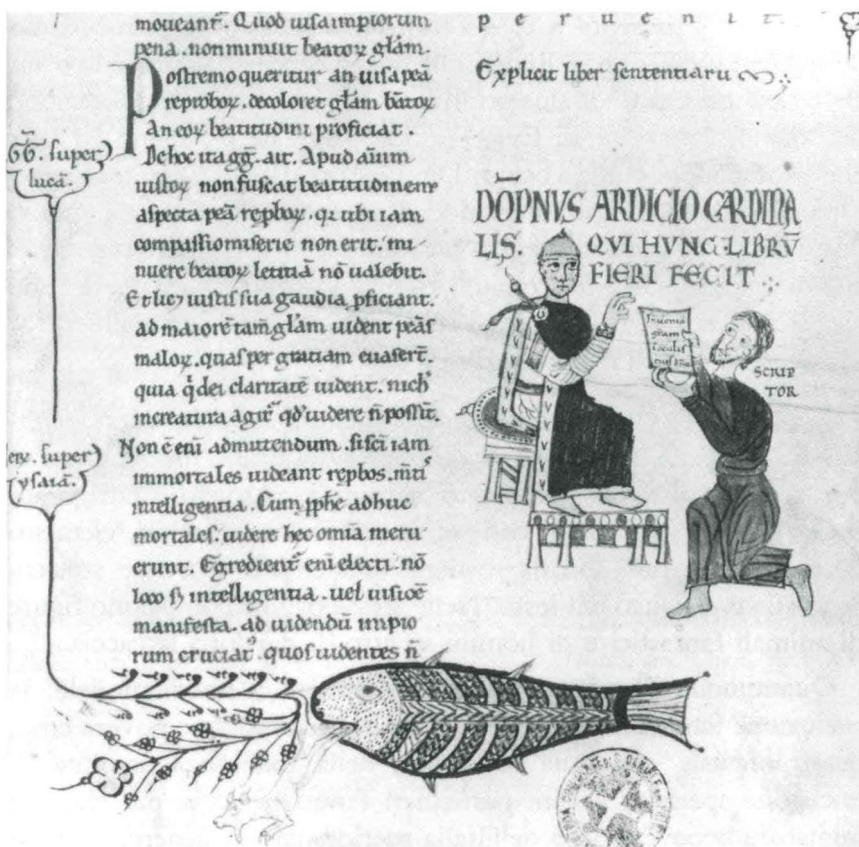 moueant. Quod uisa impiorum
pena. non minuit beatoꝝ glam̅.
Postremo queritur an uisa pea̅
reproboꝝ. decoloret glam̅ ba̅toꝝ
An eoꝝ beatitudini proficiat.
GG̅. super
luca̅.
De hoc ita gg̅. ait. Apud animu̅
iustoꝝ non fuscat beatitudinem
aspecta pea̅ reproboꝝ. q̅ ubi iam
compassio miserie non erit. mi
nuere beatoꝝ letitia̅ no̅ ualebit.
Et lic&; iustis sua gaudia ꝓficiant.
ad maiore̅ tam̅ glam̅ uident pe̅as
maloꝝ. quas per gratiam euaser̅t.
quia q̅ dei claritate̅ uident. nich̅
in creatura agit̅ qd̅ uidere n̅ possi̅t.
super)
ysaia̅.
Non e̅ eni̅ admittendum. si sc̅i iam
immortales uideant rep̅bos. m̅tis
intelligentia. Cum ꝓph̅e adhuc
mortales. uidere hec omi̅a meru
erunt. Egredient̅ eni̅ electi. no̅
loco s̅ intelligentia. uel uisio̅e
manifesta. ad uidendu̅ impio
rum cruciat̅. quos uidentes n̅
peruenit.
Explicit liber sententiaru̅
DOP̅NVS ARDICIO CARDINA
LIS. QVI HVNC LIBRV̅
FIERI FECIT
SCRIP
TOR